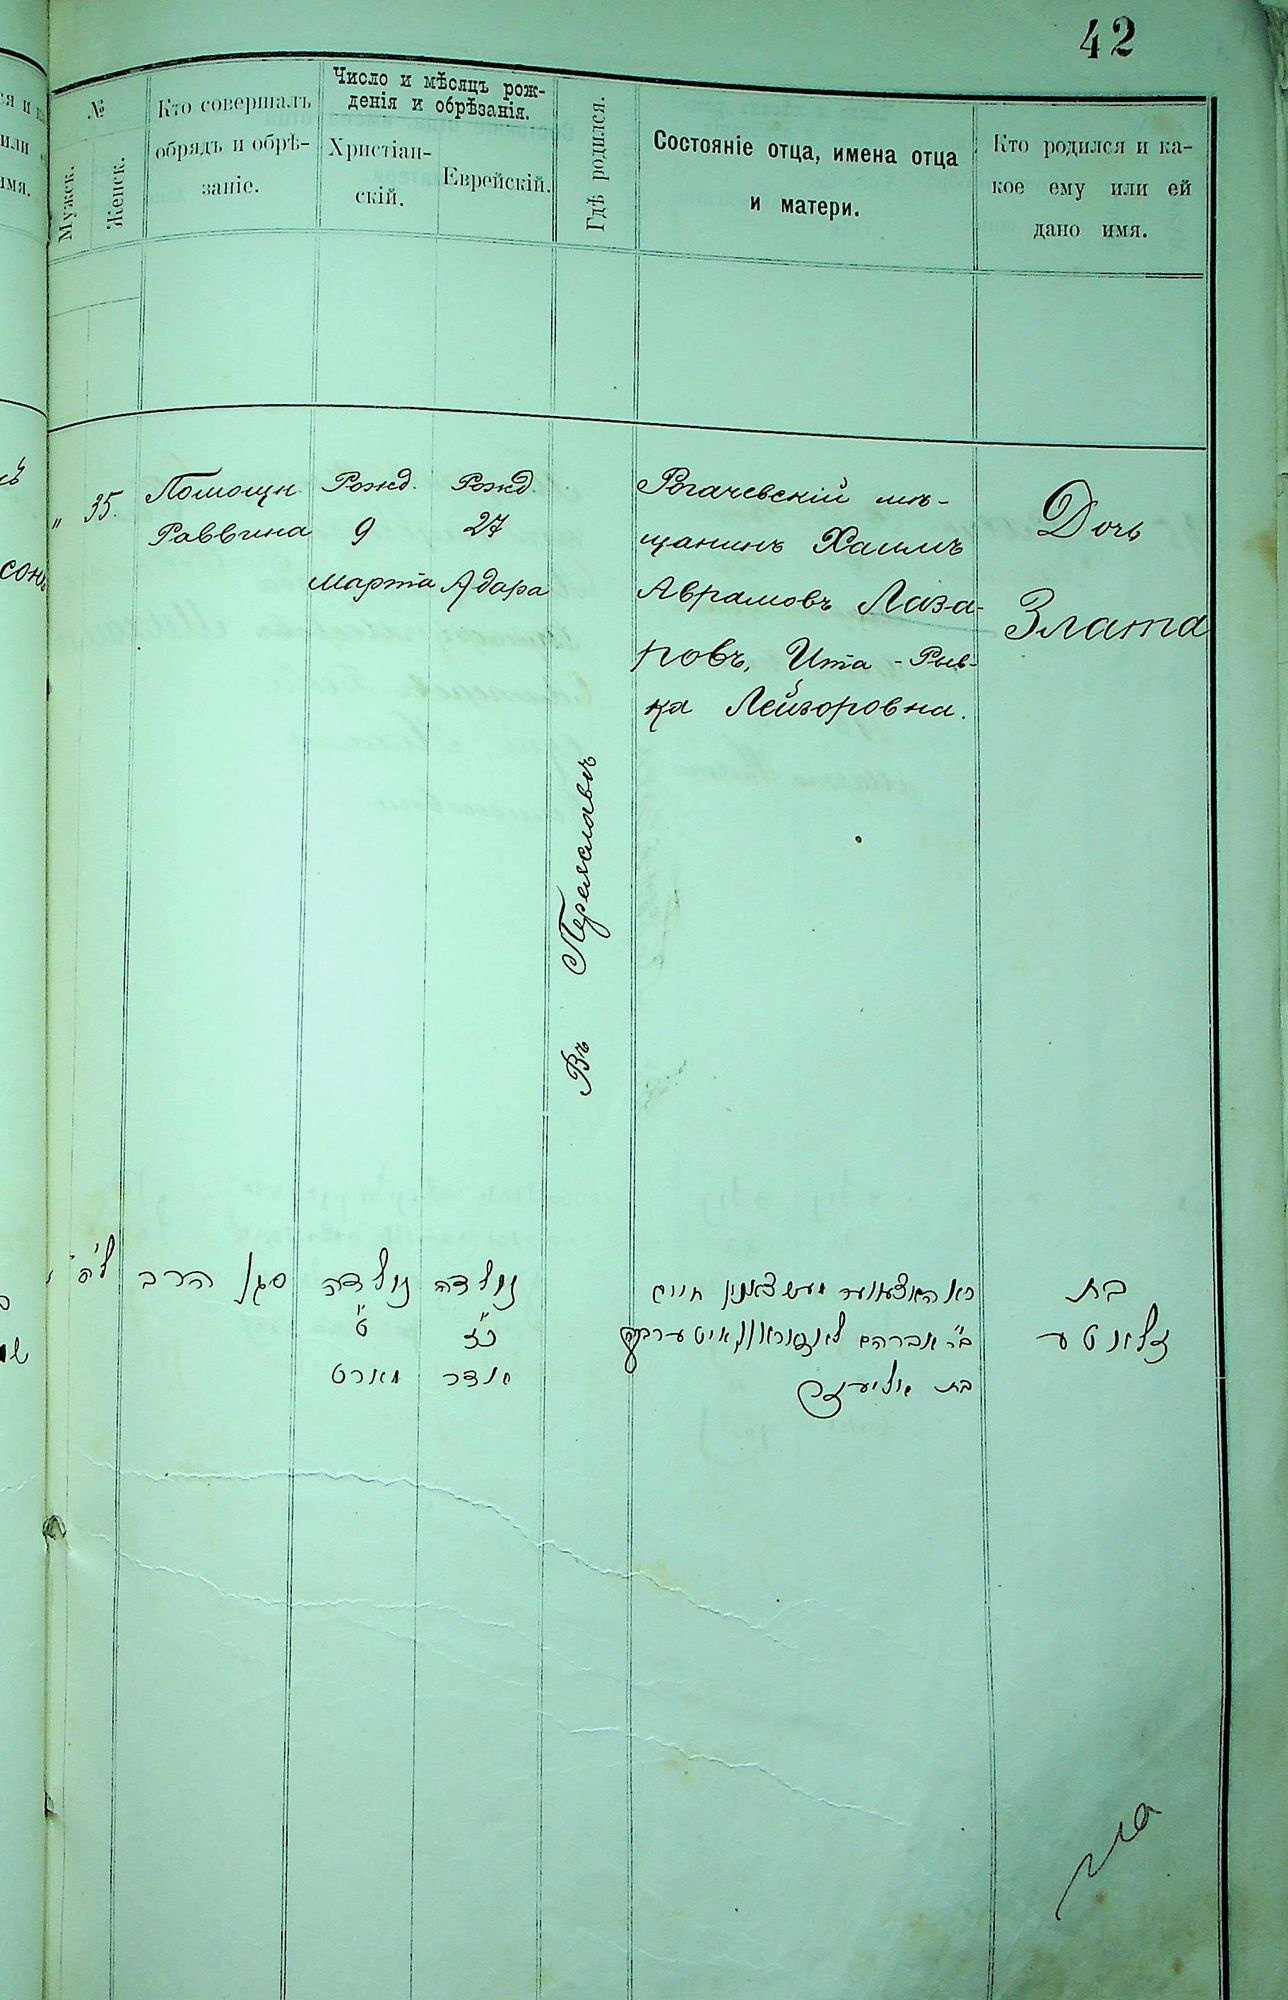 42
№
Мужск.
Женск.
Кто совершалъ
обрядъ и обрѣ-
заніе.
Число и мѣсяцъ рож-
денія и обрѣзанія.
Христіан-
скій.
Еврейскій.
Гдѣ родился.
Состояніе отца, имена отца
и матери.
Кто родился и ка-
кое ему или ей
дано имя.
" 35.
Помощн.
Раввина
Рожд.
9
Марта
Рожд.
27
Адара
Въ Переяславѣ
Рогачевскій мѣ-
щанинъ Хаимъ
Аврамовъ Лаза-
ровъ, Ита - Рыв-
ка Лейзоровна.
Дочь
Злата
ל"ה
סגן הרב
נולדה
ט"
מארט
נולדה
כ"ז
אדר
חיים
ב"ר אברהם
בת אליעזר
בת
זלאטע